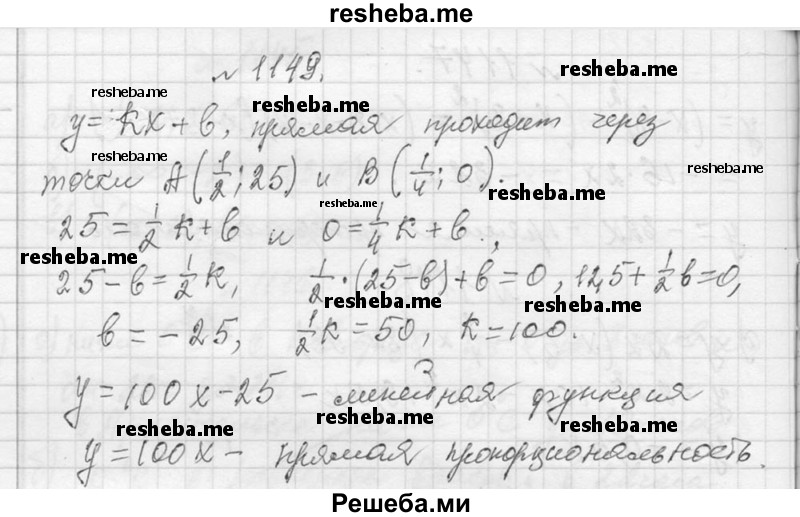 resheba.me
№ 1149.
resheba.me resheba.me resheba.me
y = kx + b, прямая проходит через
resheba.me resheba.me
точки A(1/2; 25) и B(1/4; 0).
resheba.me resheba.me
25 = 1/2 k + b и 0 = 1/4 k + b.,
resheba.me resheba.me
25 - b = 1/2 k, 1/2 · (25 - b) + b = 0, 12,5 + 1/2 b = 0,
resheba.me resheba.me
b = -25, 1/2 k = 50, k = 100.
y = 100x - 25 - линейная функция
resheba.me resheba.me resheba.me
y = 100x - прямая пропорциональность.
Решеба.ми